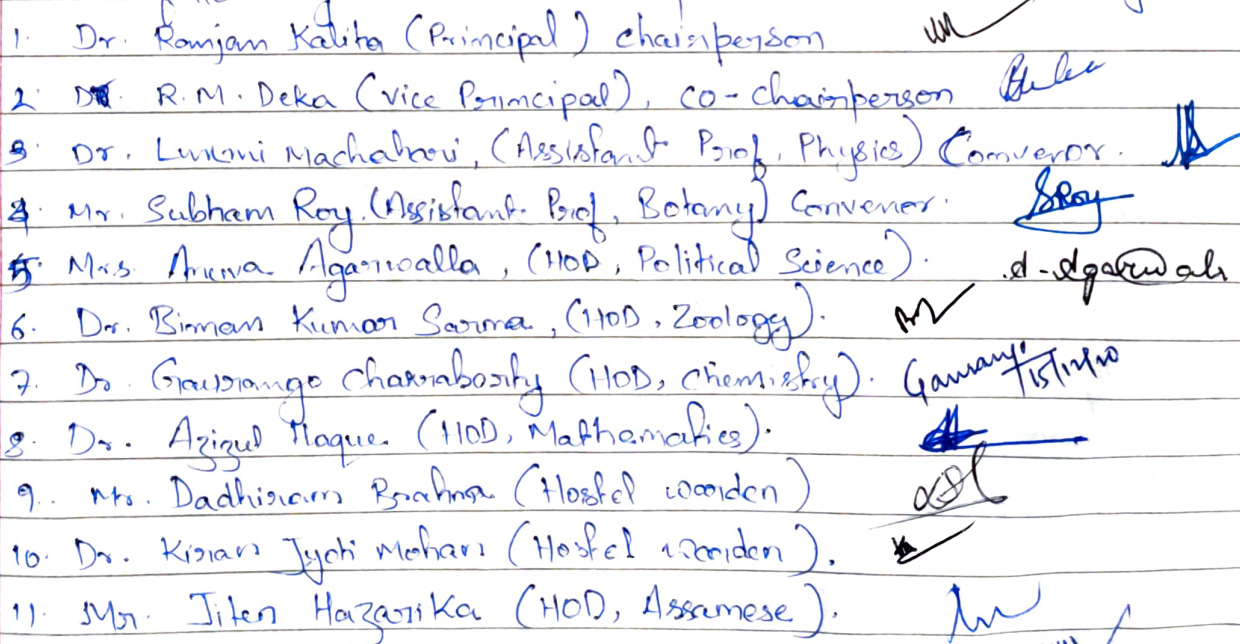 1. Dr. Ramjan Kalita (Principal) Chairperson
2. Dr. R.M. Deka (Vice Principal), Co-Chairperson
3. Dr. Luxmi Machahari, (Assistant Prof, Physics) Convenor.
4. Mr. Subham Roy, (Assistant Prof, Botany) Convenor. SRoy
5. Mrs. Agarwoalla, (HOD, Political Science). A-Agarwalla
6. Dr. Biman Kumar Sarma, (HOD, Zoology).
7. Dr. Gaurango Chakraborty (HOD, Chemistry). Gaurang
8. Dr. Azizul Haque (HOD, Mathematics).
9. Mr. Dadhiram Brahma (Hostel warden)
10. Dr. Kiran Jyoti Mohan (Hostel warden).
11. Mr. Jiten Hazarika (HOD, Assamese).